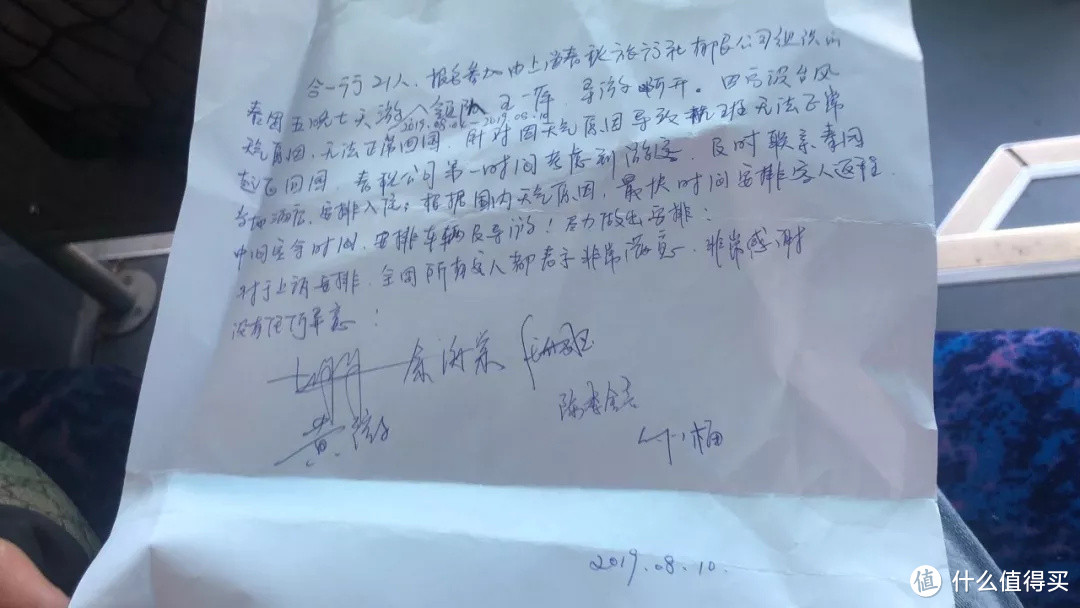 合一行21人、报名参加由上海春秋旅行社有限公司组织的
泰国五晚七天游、领队 王一萍 导游 开。因台风
2019.08.04-2019.08.10
天气原因、无法正常回国。针对因天气原因导致航班无法正常
起飞回国、春秋公司第一时间考虑到游客、及时联系泰国
当地酒店、安排入住；根据国内天气原因、最快时间安排客人返程
中间空余时间、安排车辆及导游！尽力做出安排：
对于上诉安排、全团所有客人都表示非常满意、非常感谢
没有任何异意！
黄
陈
2019.08.10.
值 什么值得买